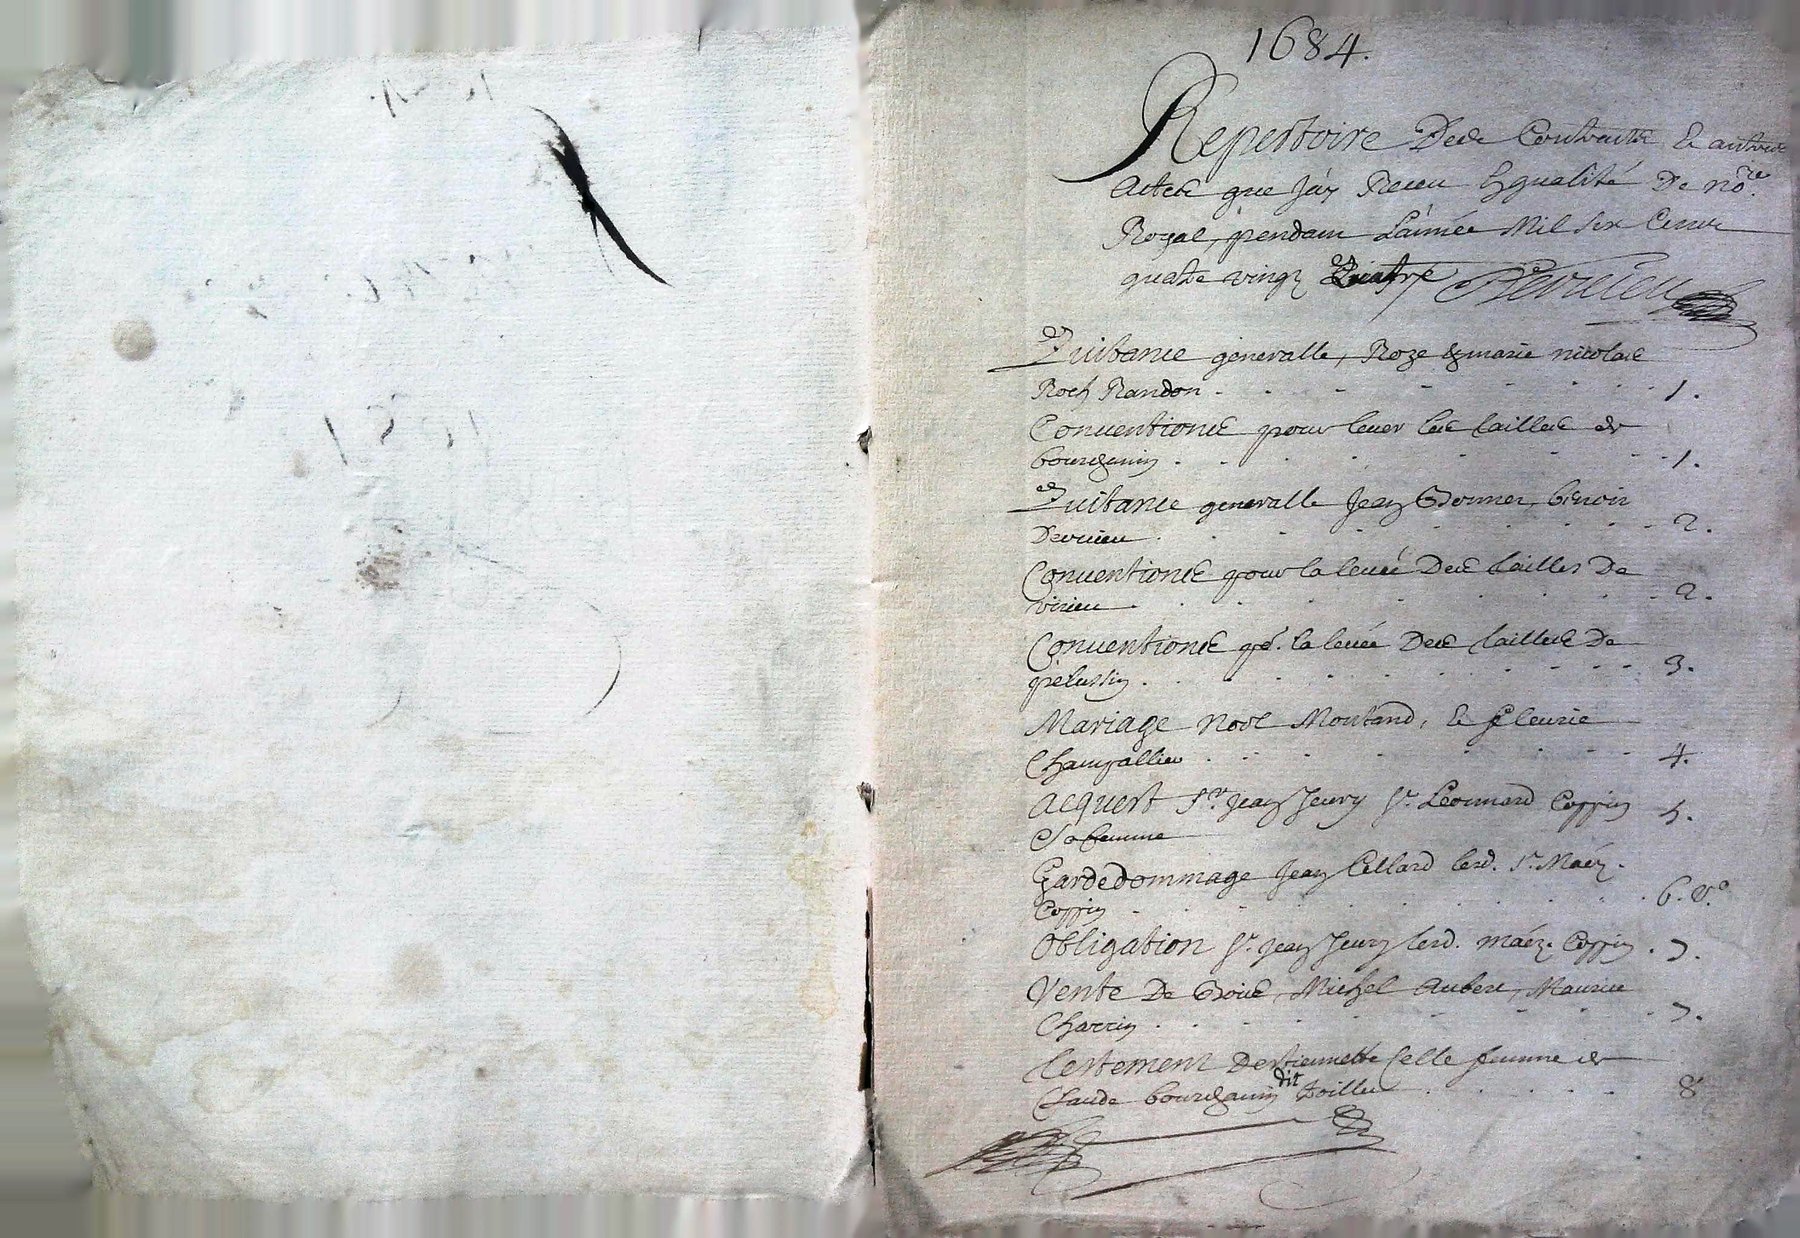 1684.
Repertoire Des Contraits & autres
Actes que J'ay Receu En qualité De no.re
Royal, pendant L'année Mil six Cents
quatre vingt Quatre Devirieu
Quitance generalle, Roze & marie nicolas
Roch Randon . 1.
Conventions pour lever les tailles de
bourdanin . 1.
Quitance generalle Jean Bonner, benoit
Devirieu . 2.
Conventions pour la levée Des tailles De
virieu . 2.
Conventions po.r la levée Des tailles De
pelussin . 3.
Mariage Noel Montand, & fleurie
Champallier . 4.
Acquest S.r Jean Jeury S.r Leonnard Coppin
& sa femme 5.
Gardedommage Jean Cellard led. S.r
Coppin . 6. v.o
Obligation S.r Jean Jeury led. Coppin . 7.
Vente De Bois, Michel Aubert, Maurice
Charrin . 7.
Testement D'estiennette Celle femme de
Claude bourdanin dit Toilleu . 8